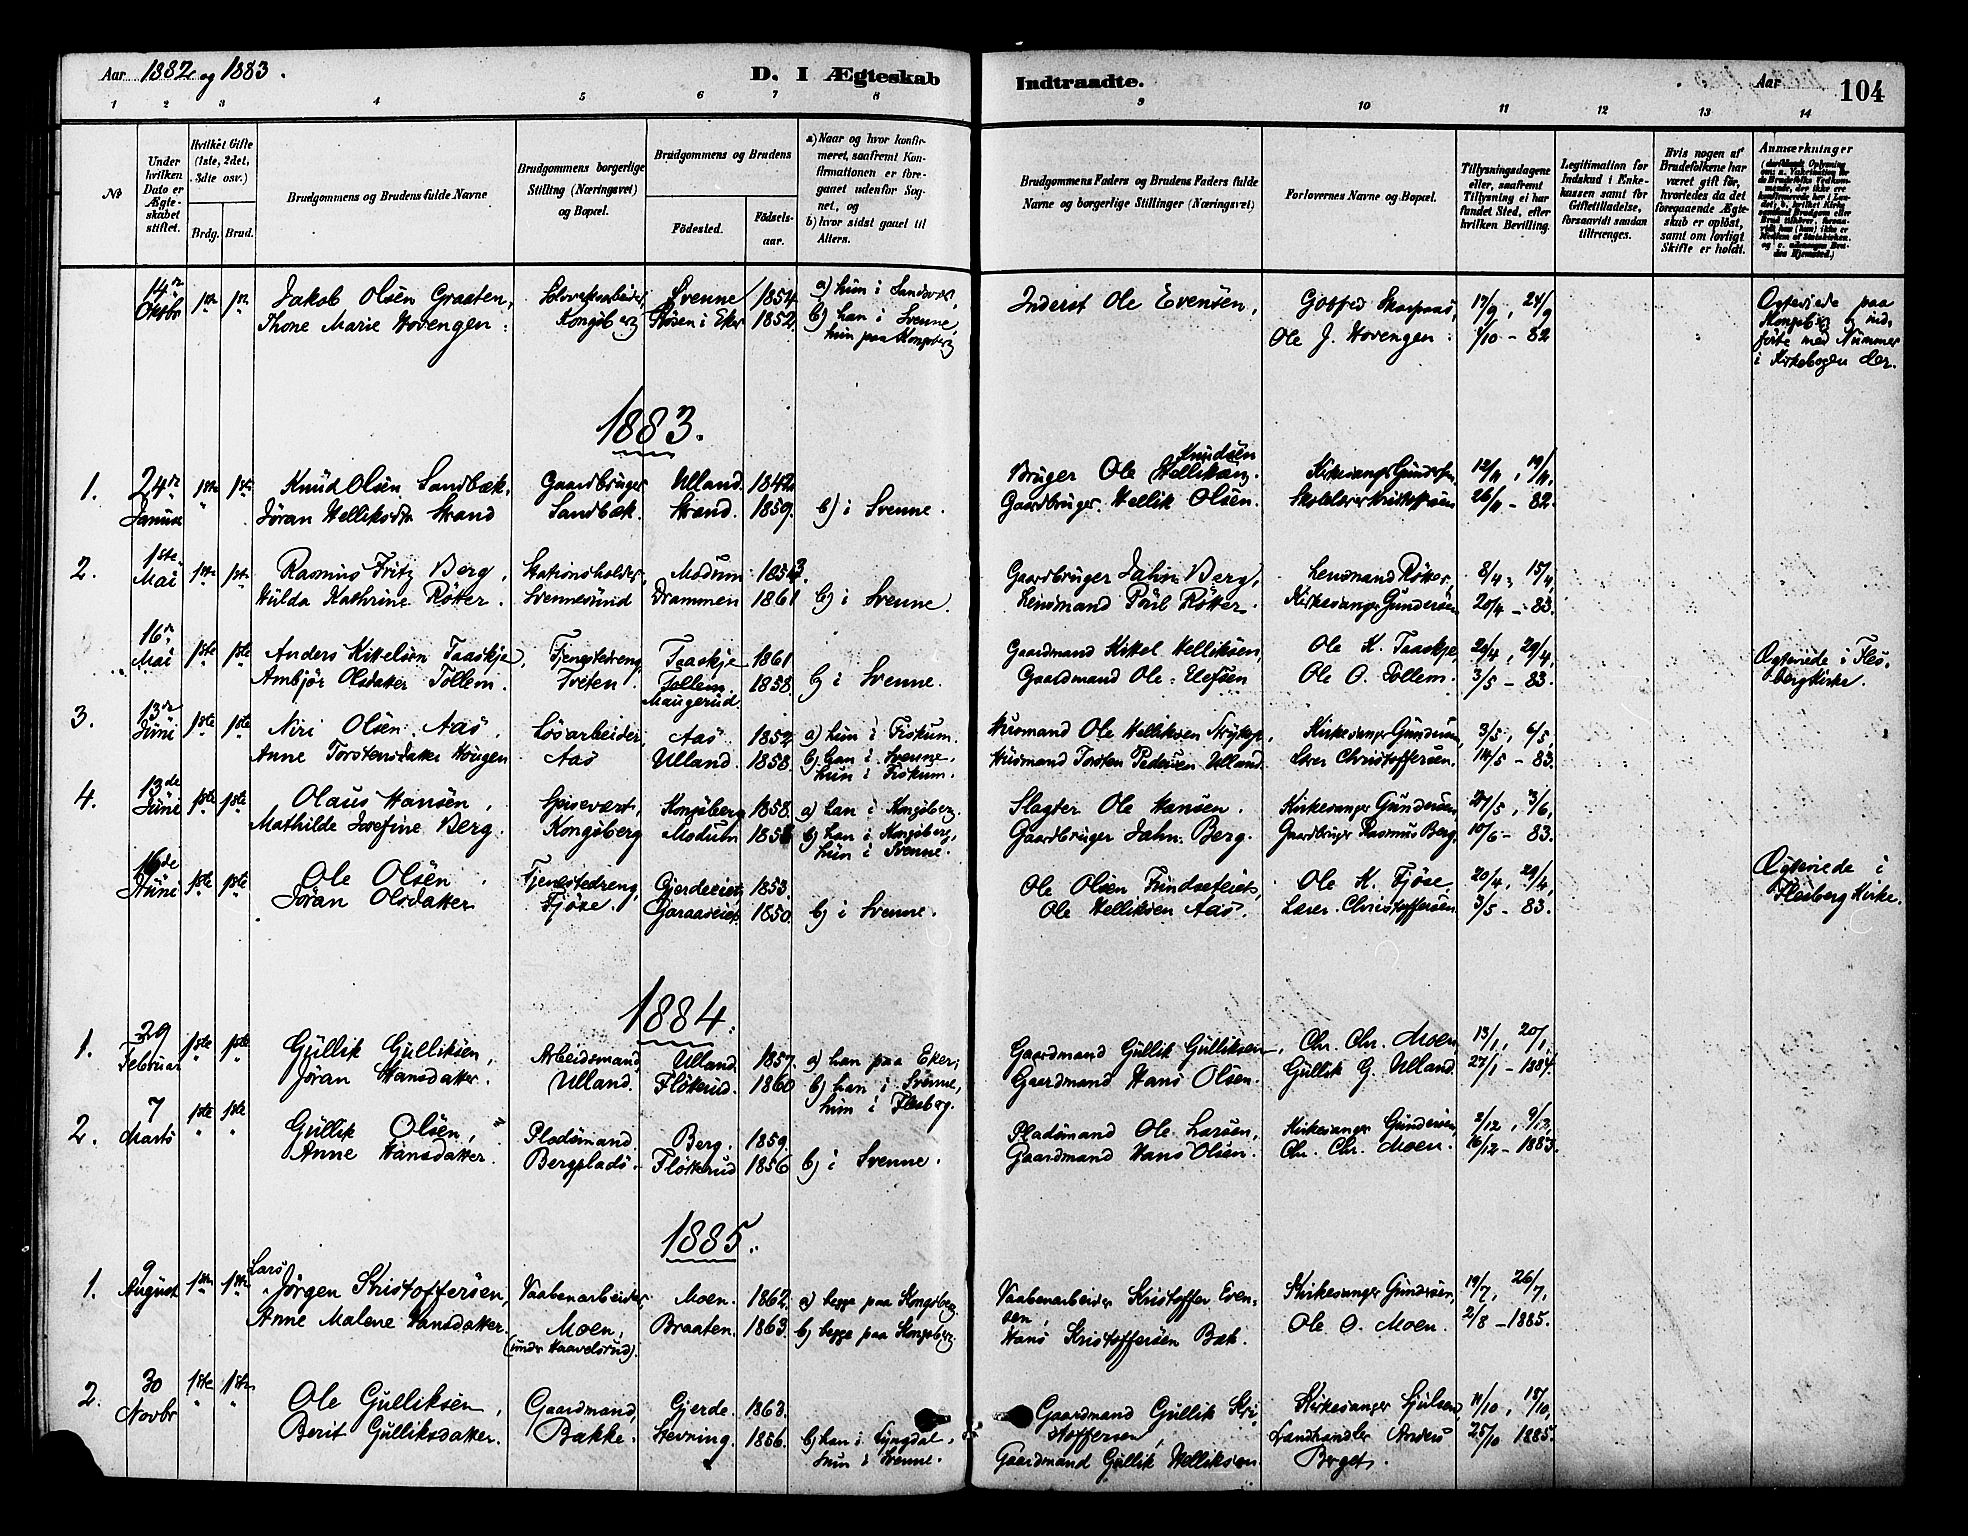 Aar 1882 og 1883.
D. I Ægteskab
Indtraadte.
Aar
104
1 2 3 4 5 6 7 8 9 10 11 12 13 14
No
Under hvilken Dato er Ægteskabet stiftet.
Hvilket Gifte (1ste, 2det, 3die osv.)
Brdg. Brud.
Brudgommens og Brudens fulde Navne
Brudgommens borgerlige Stilling (Næringsvei) og Bopæl.
Brudgommens og Brudens
Fødested. Fødselsaar.
a) Naar og hvor konfirmeret, saafremt Konfirmationen er foregaaet udenfor Sognet, og
b) hvor sidst gaaet til Alters.
Brudgommens Faders og Brudens Faders fulde Navne og borgerlige Stillinger (Næringsvei)
Forlovernes Navne og Bopæl.
Tillysningsdagene eller, saafremt Tillysning ei har fundet Sted, efter hvilken Bevilling.
Legitimation for Indskud i Enkekassen samt for Giftetilladelse, forsaavidt saadan tiltrænges.
Hvis nogen af Brudefolkene har været gift før, hvorledes da det foregaaende Ægteskab er opløst, samt om lovligt Skifte er holdt.
Anmærkninger
14de Oktbr 1ste 1ste Jakob Olsen Graaten, Sølvverksarbeider Svenne 1854 a) hun i Sandsvær, Inderst Ole Evensen, 17/9, 24/9
Thone Marie Hovengen: Kongsberg i Eker 1852. b) han i Svenne, hun paa Kongsberg Ole J. Hovengen: 1/10 - 82
Ægteviede paa Kongsberg & indførte med Nummer i Kirkebogen der.
1883.
1. 24de Januar 1ste 1ste Knud Olsen Sandbæk, Gaardbruger Ulland. 1842 Bruger Ole Knudsen Kirkesanger Gundersen, 12/11, 19/11,
Jøran Helliksdtr Strand Sandbæk. Strand. 1859. b) i Svenne. Gaardbruger Hellik Olsen. Skolelærer Kristoffersen 26/11 - 82.
2. 1ste Mai 1ste 1ste Rasmus Fritz Berg, Stationsholder, Modum 1853. Gaardbruger Jahn Berg, Lensmand Røtter, 8/4, 15/4,
Hulda Kathrine Røtter. Svennesund Drammen 1861 b) i Svenne. Lensmand Poul Røtter. Kirkesanger Gundersen 20/4 - 83.
16de Mai 1ste 1ste Anders Kittelsen Taaskje, Tjenestedreng Taaskje 1861 Gaardmand Kittel Helliksen, Ole K. Taaskje, 29/4,
Ambjør Olsdatter Tollem. Tveten. Tollem Maugerud 1858. b) i Svenne. Gaardmand Ole Elefsen Ole O. Tollem. 3/5 - 83.
Ægteviede i Flesberg Kirke.
3. 13de Juni 1ste 1ste Niri Olsen Aas. Løsarbeider, Aas 1852 a) hun i Fiskum. Husmand Ole Helliksen Kirkesanger Gundersen, 3/5, 6/5,
Anne Torstensdatter Hougen Aas Ulland. 1858. b) han i Svenne. hun i Fiskum. Husmand Torsten Pedersen Ulland. Lærer Christoffersen. 14/5 - 83.
4. 13de Juni 1ste 1ste Olaus Hansen, Spisevært, Kongsberg 1858. a) han i Kongsberg. Slagter Ole Hansen. Kirkesanger Gundersen, 27/5, 3/6,
Mathilde Josefine Berg. Kongsberg Modum b) han i Kongsberg, hun i Svenne. Gaardbruger Jahn Berg. Gaardbruger Rasmus Berg. 10/6 - 83.
16de Juni 1ste 1ste Ole Olsen, Tjenestedreng, Gjerdeeiet, 1853. Ole Olsen Ole K. Fjøse, 20/4, 29/4,
Jøran Olsdatter Fjøse. Garaaseiet 1850. b) i Svenne. Ole Helliksen Aas. Lærer Christoffersen 3/5 - 83.
Ægteviede i Flesberg Kirke.
1884.
1. 29 Februar 1ste 1ste Gullik Gulliksen, Arbeidsmand, Ulland. 1857. a) han paa Eker, Gaardmand Gullik Gulliksen, Chr. Chr. Moen, 13/1, 20/1,
Jøran Hansdatter. Ulland. Fløterud. 1860 b) han i Svenne, hun i Flesberg. Gaardmand Hans Olsen. Gullik G. Ulland. 27/1 - 1884.
2. 7 Marts 1ste 1ste Gullik Olsen, Pladsmand Berg. 1859. Pladsmand Ole Larsen, Kirkesanger Gundersen, 2/12, 9/12,
Anne Hansdatter. Bergplads. Fløterud 1856 b) i Svenne. Gaardmand Hans Olsen. Chr. Chr. Moen. 16/12 - 1883.
1885.
1. 9 August 1ste 1ste Lars Jørgen Kristoffersen, Vaabenarbeider, Moen. 1862. a) begge paa Kongsberg. Vaabenarbeider Kristoffer Evensen, Kirkesanger Gundersen, 19/7, 26/7,
Anne Malene Hansdatter. Moen, (under Haavelsrud). Braaten. 1863. b) begge paa Kongsberg Hans Kristoffersen Bæk. Ole O. Moen. 2/8 - 1885.
2. 30 Novbr 1ste 1ste Ole Gulliksen, Gaardmand, Gjerde. 1863. Gaardmand Gullik Kristoffersen, Kirkesanger 11/10, 18/10,
Berit Gulliksdatter. Bakke. Stevning. 1856. b) han i Lyngdal, hun i Svenne. Gaardmand Gullik Helliksen Landhandler Anders Berget. 25/10 1885.